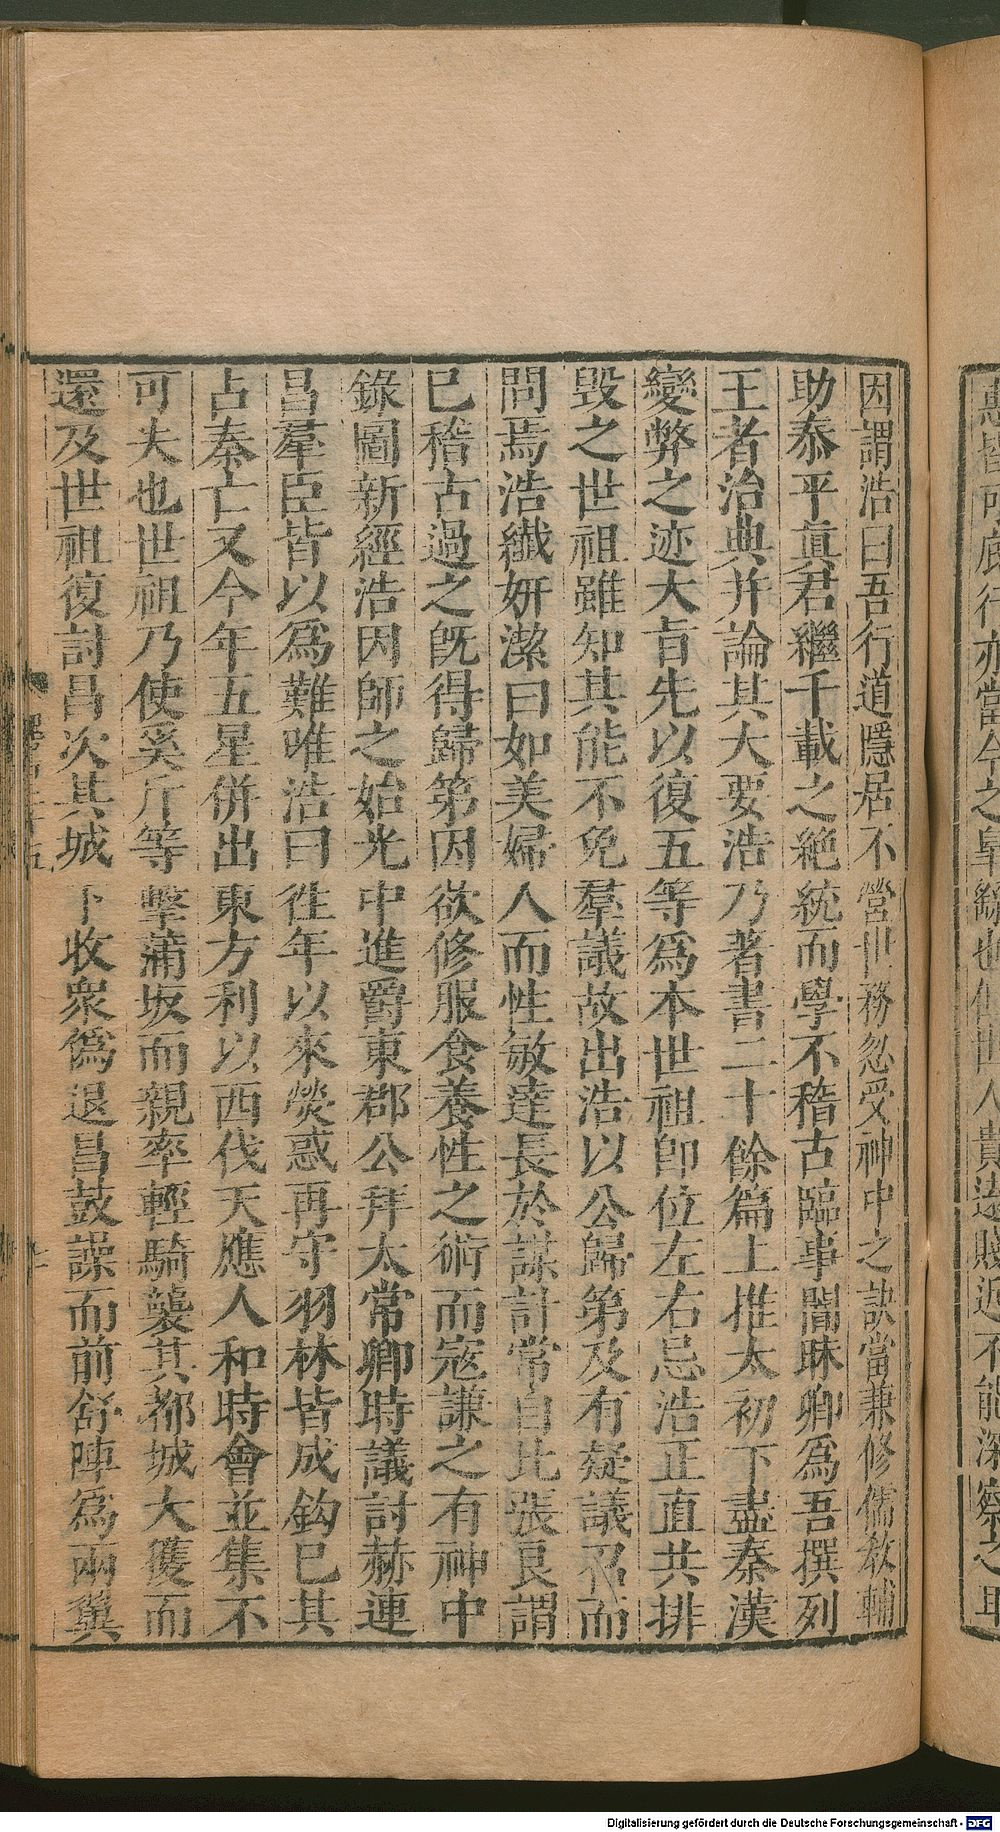 因謂浩曰吾行道隱居不營世務忽受神中之訣當兼修儒教輔
助泰平眞君繼千載之絶統而學不稽古臨事闇昧卿爲吾撰列
王者治典并論其大要浩乃著書二十餘篇上推太初下盡秦漢
變弊之迹大旨先以復五等爲本世祖卽位左右忌浩正直共排
毀之世祖雖知其能不免羣議故出浩以公歸第及有疑議召而
問焉浩纖妍潔曰如美婦人而性敏達長於謀計常自比張良謂
已稽古過之旣得歸第因欲修服食養性之術而寇謙之有神中
錄圖新經浩因師之始光中進爵東郡公拜太常卿時議討赫連
昌羣臣皆以爲難唯浩曰徃年以來熒惑再守羽林皆成鈎已其
占秦亡又今年五星併出東方利以西伐天應人和時會並集不
可失也世祖乃使奚斤等擊蒲坂而親率輕騎襲其都城大獲而
還及世祖復討昌次其城下收衆僞退昌鼓譟而前舒陣爲兩翼
惠皆可底行亦當今之臯繇也但世人貴遠賤近不能深察之耳
Digitalisierung gefördert durch die Deutsche Forschungsgemeinschaft - DFG